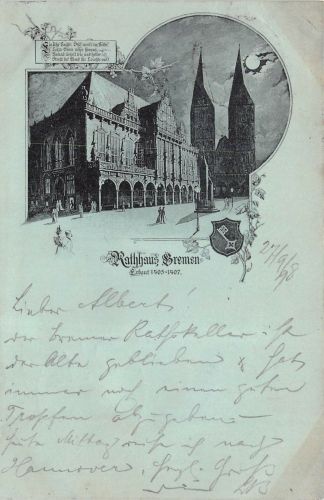 Rathhaus Bremen
Erbaut 1405-1407.
27/9/98
Lieber Albert!
der Bremer Rathskeller ist
der Alte geblieben & hat
immer noch einen guten
Tropfen abzugeben.
heute Mittag reise ich nach
Hannover. Herzl. Gruß